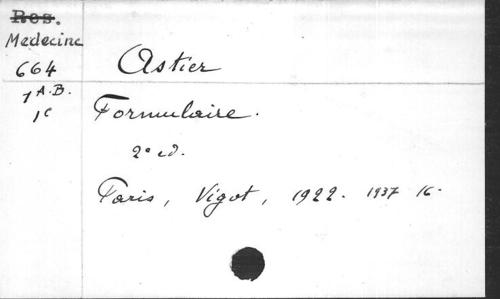 Res.
Medecine
664
1 A-B.
1c
Astier
Formulaire.
2e éd.
Paris, Vigot, 1922. 1937 16-